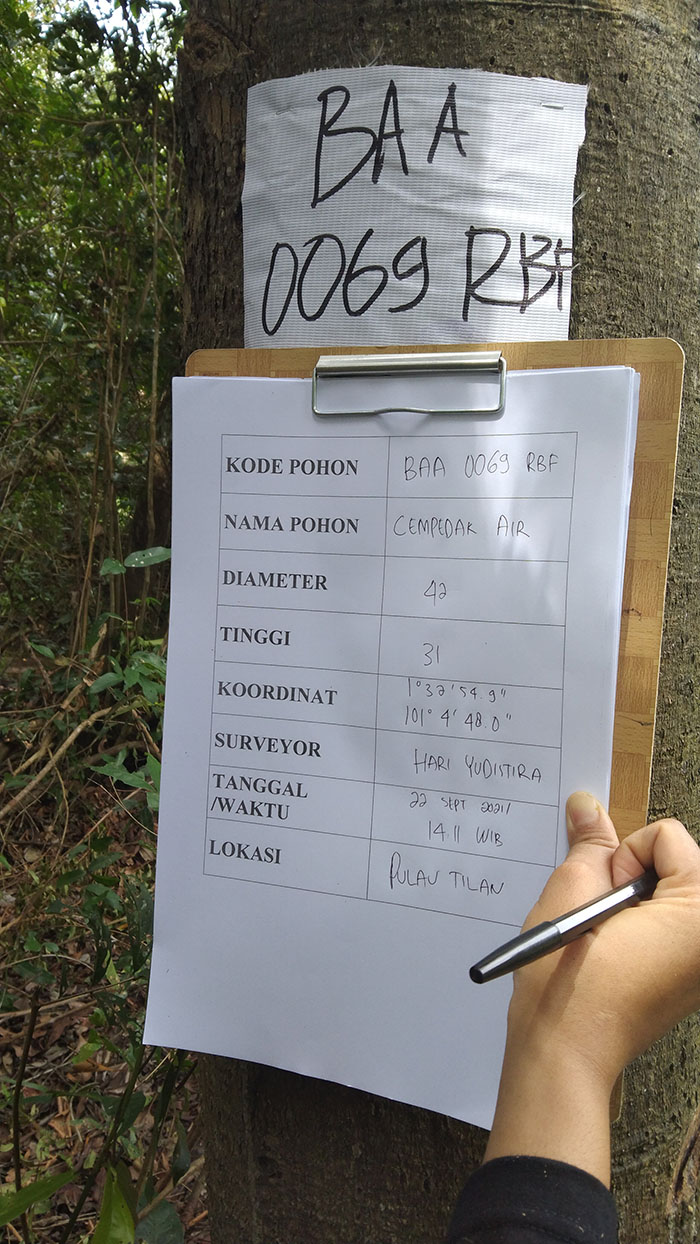 BAA
0069 RBF
KODE POHON BAA 0069 RBF
NAMA POHON CEMPEDAK AIR
DIAMETER 42
TINGGI 31
KOORDINAT 1° 32' 54.9"
101° 4' 48.0"
SURVEYOR HARI YUDISTIRA
TANGGAL 22 SEPT 2021/
/WAKTU 14.11 WIB
LOKASI PULAU TILAN